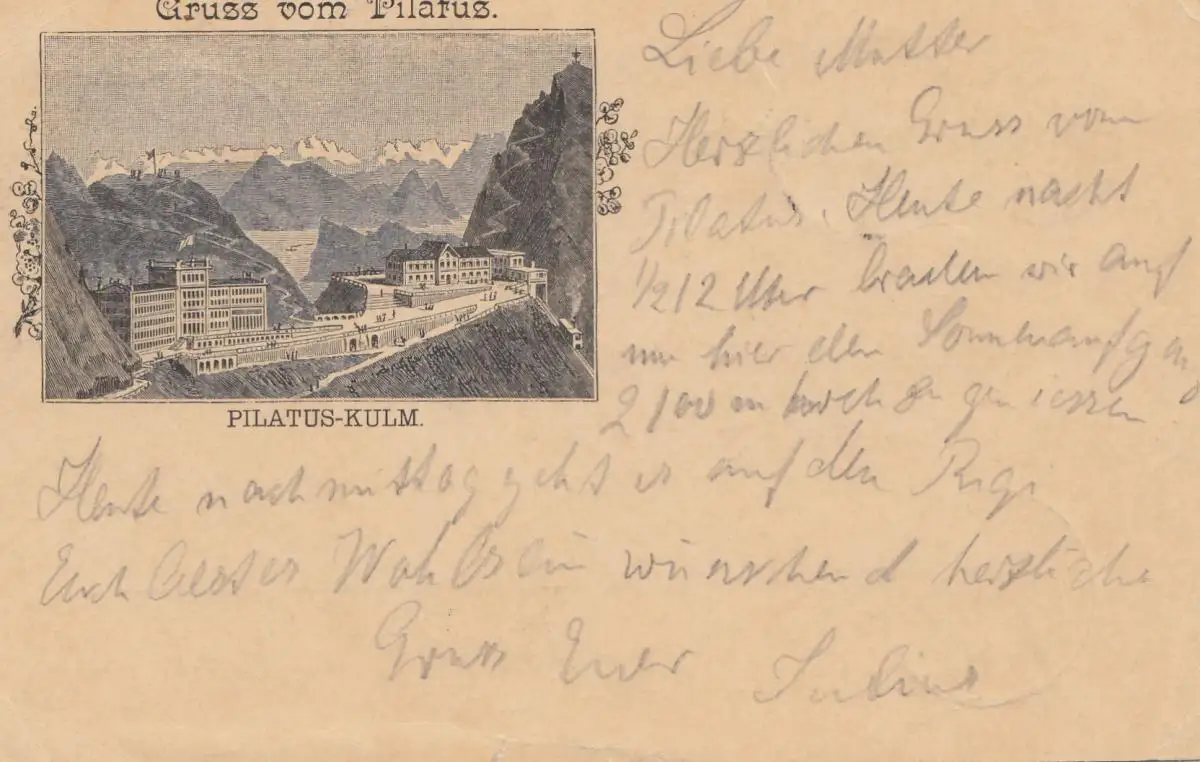 Gruss vom Pilatus.
Liebe Mutter
Herzlichen Gruss vom
Pilatus. Heute nacht
1/2 12 Uhr brachen wir auf
um hier den Sonnenaufgang
2100 m hoch zu geniessen
PILATUS-KULM.
Heute nachmittag geht es auf den Rigi
Euch bestes Wohlsein wünschend herzliche
Gruss Euer Julius